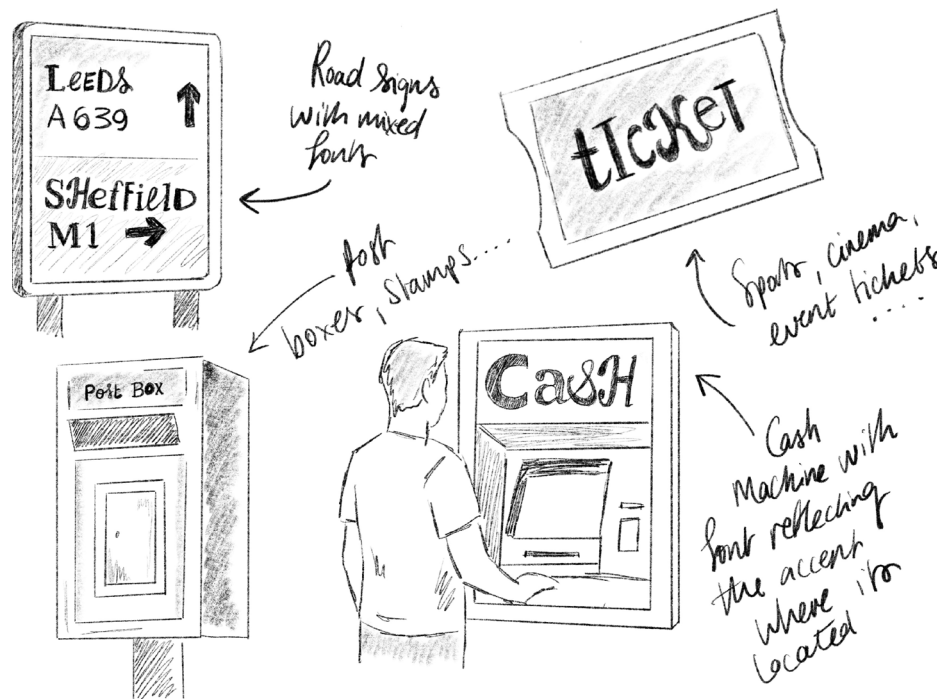 LeeDs
A639
SHeffielD
M1
Road signs
with mixed
fonts
tIcKeT
Post
boxes, stamps...
Sports, cinema,
event tickets
....
Post Box
CasH
Cash
Machine with
font reflecting
the accent
where its
located